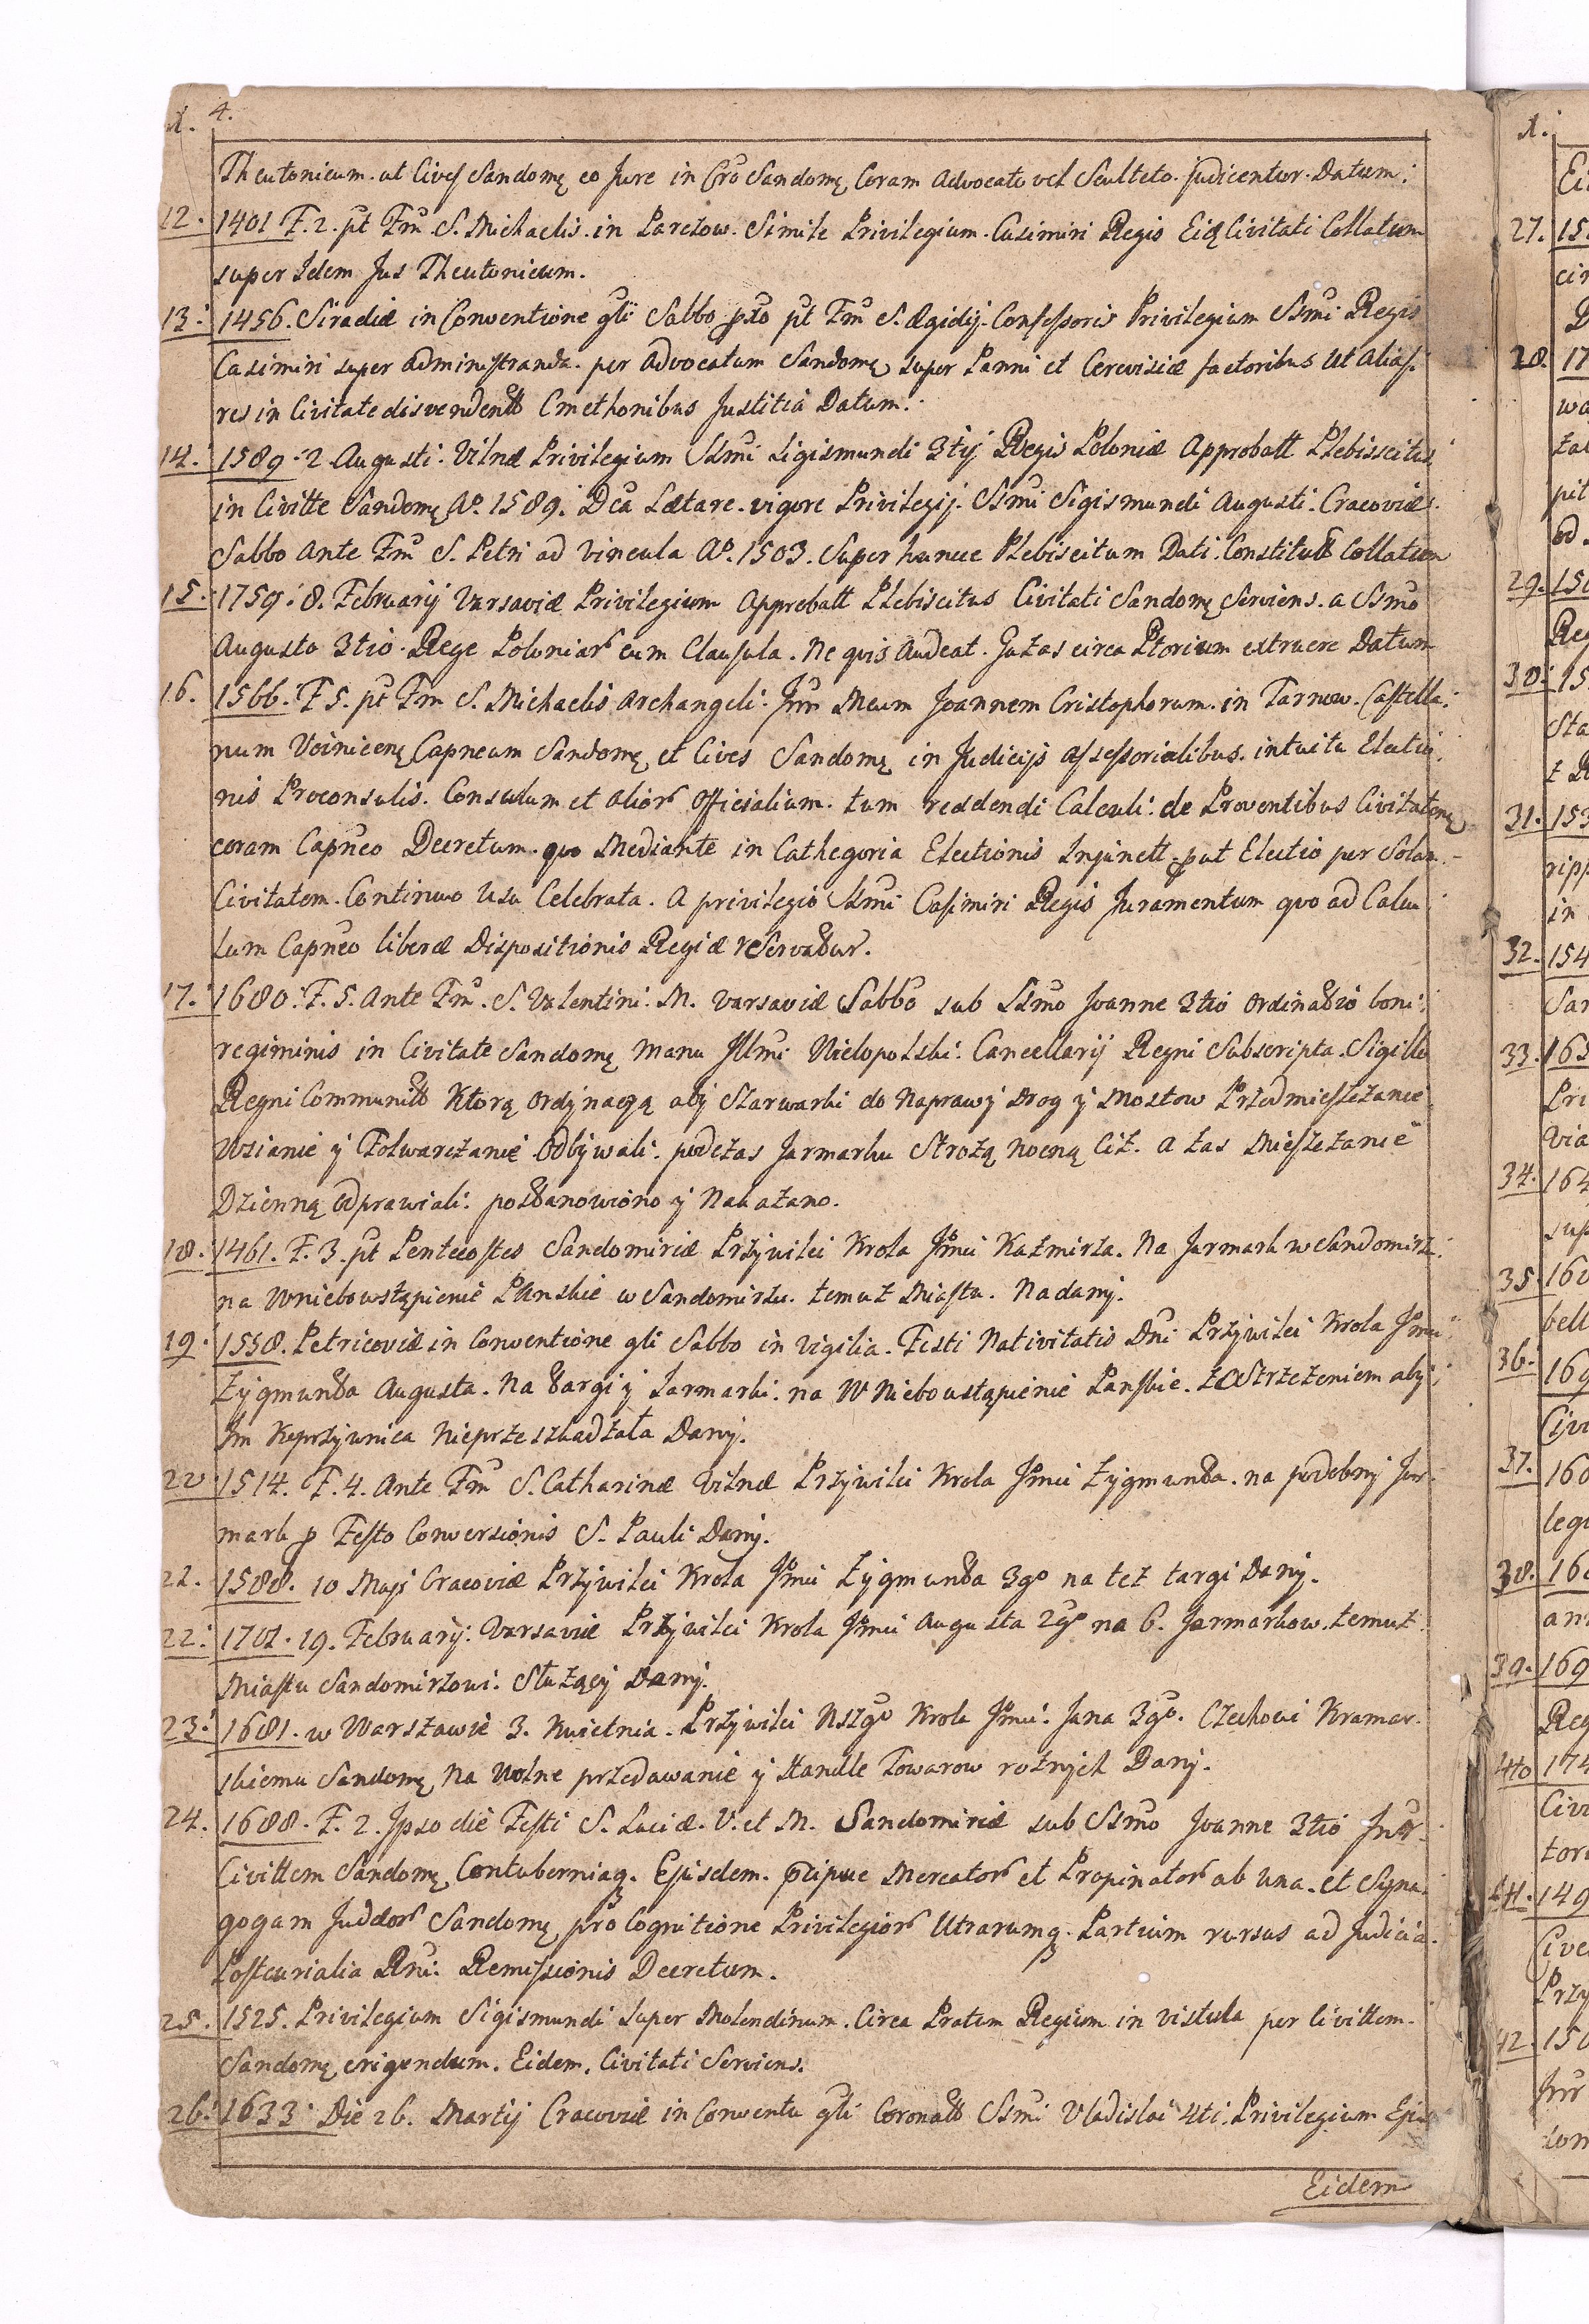 A. 4.
Theutonicum. ut Cives Sandomę eo Jure in Cro Sandomę Coram Advocato vel Sculteto judicentur. Datum.
12. 1401 F. 2. pt Fm S. Michaelis. in Parczow. Simile Privilegium. Casimiri Regis Eidq Civitati Collatum
super Idem Jus Theutonicum.
13. 1456. Siradiæ in Conventione gli Sabbo pxo pt Fm S. Ægidij. Confessoris Privilegium Ssmi Regis
Casimiri super administranda. per advocatum Sandomę super Panni et Cerevisiæ factoribus ut alias
res in Civitate disvendentt Cmethonibus Justitia Datum.
14. 1589. 2 Augusti. Vilnæ Privilegium Ssmi Sigismundi 3tij Regis Poloniæ Approbatt Plebisscitus
in Civitte Sandomę Ao. 1589. Dca Lætare. vigore Privilegij. Ssmi Sigismundi Augusti. Cracoviæ.
Sabbo Ante Fm S. Petri ad Vincula Ao. 1503. Super huncce Plebiscitum Dati. Constitutt Collatum
15. 1759. 8. Februarij Varsaviæ Privilegium Approbatt Plebiscitus Civitati Sandomę Serviens. a Ssmo
Augusto 3tio. Rege Poloniar cum Clausula. Ne quis Audeat. Gazas circa Ptorium extruere Datum
16. 1566. F 5. pt Fm S. Michaelis Archangeli. Inn Meum Joannem Cristophorum. in Tarnow. Castella
num Voinicenę Capneum Sandomę et Cives Sandomę in Judicijs assessorialibus. intuitu Electio
nis Proconsulis. Consulum et alior officialium. tum reddendi Calculi. de Proventibus Civitatenę
coram Capneo Decretum. quo Mediante in Cathegoria Electionis Injunctt put Electio per Solam
Civitatem. Continuo Usu Celebrata. A privilegio Ssmi Casimiri Regis Juramentum quo ad Calcu
lum Capneo liberæ Dispositionis Regiæ reservatur.
17. 1680. F. 5. Ante Fm. S. Valentini. M. Varsaviæ Sabbo sub Ssmo Joanne 3tio ordinatio boni
regiminis in Civitate Sandomę manu Illmi Wielopolski. Cancellarij Regni Subscripta. Sigillo
Regni Communitt Ktorą Ordynacyą aby Szarwarki do Naprawy Drog y Mostow Przedmieszczanie
Wzianie y Folwarczanie Odbywali. podczas Jarmarku Strożą nocną Ciż. a zas Mieszczanie
Dzienną odprawiali. postanowiono y Nakazano.
18. 1461. F. 3. pt Pentecostes Sandomiriæ Przywilei Krola Jmci Kazmirza. Na Jarmark w Sandomirz
na Wniebowstąpienie Panskie w Sandomirzu. temuz Miastu. Nadany.
19. 1558. Petricoviæ in Conventione gli Sabbo in vigilia. Festi Nativitatis Dni Przywilei Krola Jmci
Zygmunta Augusta. Na targi y Jarmarki. na W Niebowstąpienie Panskie. z Ostrzezeniem aby
Im Koprzywnica Nieprzeszkadzała Dany.
20. 1514. F. 4. Ante Fm S. Catharinæ Vilnæ Przywilei Krola Jmci Zygmunta. na podobny Jar
mark p Festo Conversionis S. Pauli Dany.
21. 1588. 10 Maji Cracoviæ Przywilei Krola Jmci Zygmunta 3go na też targi Dany.
22. 1701. 19. Februarij. Varsaviæ Przywilei Krola Jmci Augusta 2go na 6. Jarmarkow. temuz
Miastu Sandomirzowi. Służący Dany.
23. 1681. w Warszawie 3. Kwietnia. Przywilei Nszgo Krola Jmci. Jana 3go. Czechowi Kramar
skiemu Sandomę Na Wolne przedawanie y Handle Towarow rożnych Dany.
24. 1688. F. 2. Ipso die Festi S. Luciæ. V. et M. Sandomiriæ sub Ssmo Joanne 3tio Intr
Civittem Sandomę Contuberniaq. Ejusdem. pcipue Mercator et Propinator ab una. et Syna
gogam Judæor Sandomę pro Cognitione Privilegior Utrarumq. Partium rursus ad Judicia
Postcurialia Rni. Remissionis Decretum.
25. 1525. Privilegium Sigismundi Super Molendinum. Circa Pratum Regium in vistula per Civittem
Sandomę erigendum. Eidem. Civitati Serviens.
26. 1633. Die 26. Martij Cracoviæ in Conventu gli Coronatt Ssmi Vladislai 4ti. Privilegium Ejus
Eidem
A.
27. 15
28. 17
29. 150
Reg
30. 15
Sta
31. 153
ripp
in
32. 154
San
33. 163
Pri
via
34. 164
sup
35. 160
bell
36. 169
Civi
37. 160
legi
38. 160
39. 169
Reg
40 174
Civi
tor
41. 149
Cive
Przy
42. 150